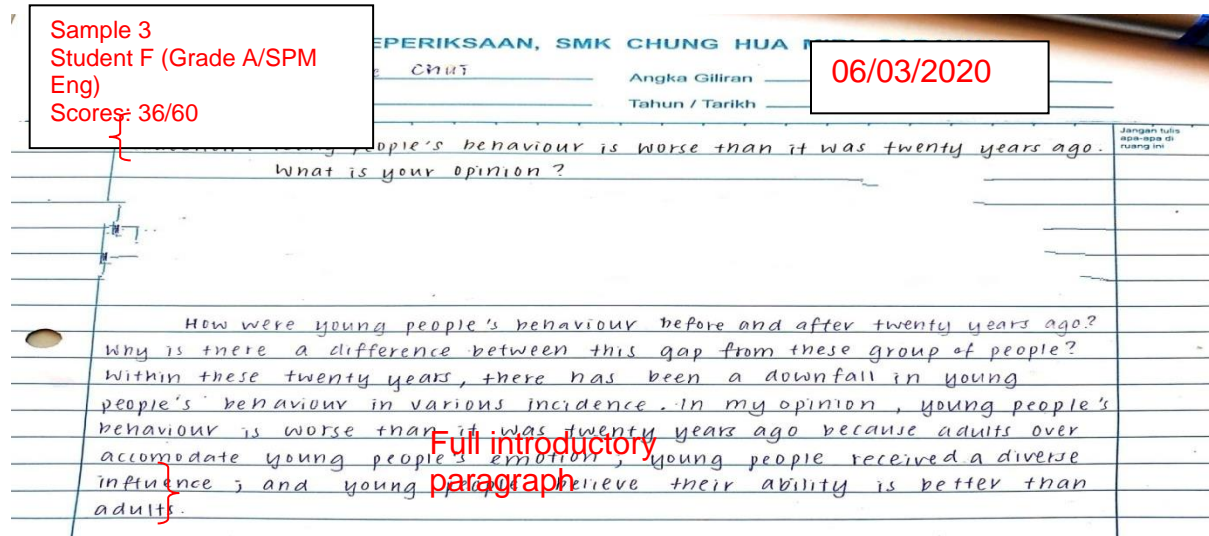 Sample 3
Student F (Grade A/SPM
Eng)
Scores: 36/60
EPERIKSAAN, SMK CHUNG HUA
Chui
Angka Giliran
06/03/2020
Tahun / Tarikh
Jangan tulis
apa-apa di
ruang ini
people's behaviour is worse than it was twenty years ago.
What is your opinion?
How were young people's behaviour before and after twenty years ago?
Why is there a difference between this gap from these group of people?
Within these twenty years, there has been a downfall in young
people's behaviour in various incidence. In my opinion, young people's
behaviour is worse than it was twenty years ago because adults over
accomodate young people's emotion, young people received a diverse
influence; and young people believe their ability is better than
adults.
Full introductory
paragraph